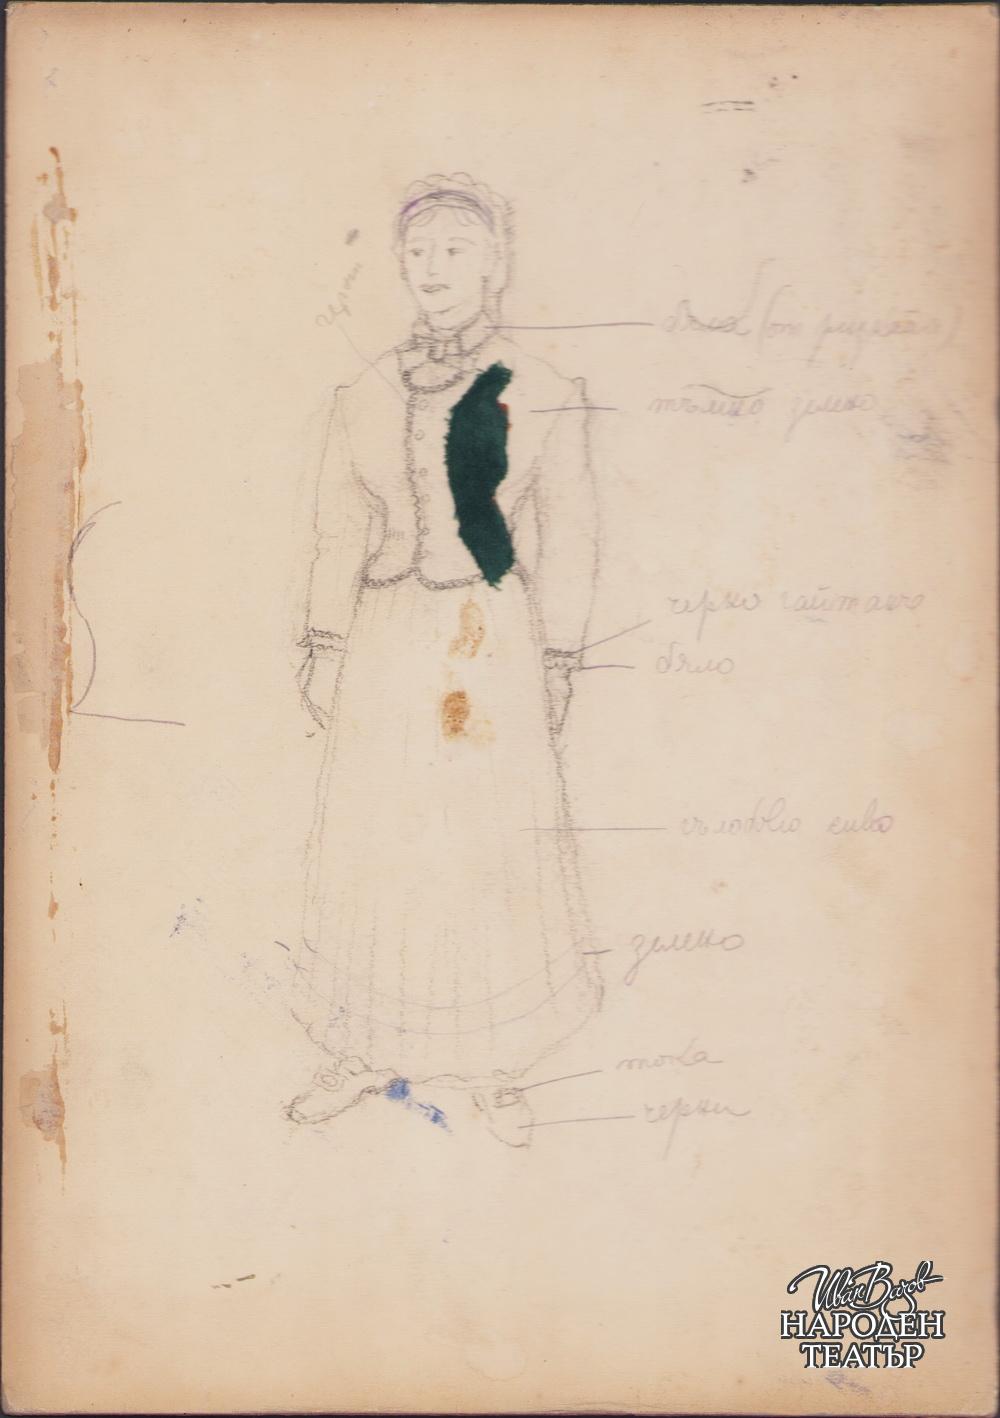 бяла (от ризката)
тъмно зелено
черни
черно гайтанче
бяло
гълъбово сиво
зелено
тока
черни
Иван Вазов
НАРОДЕН
ТЕАТЪР